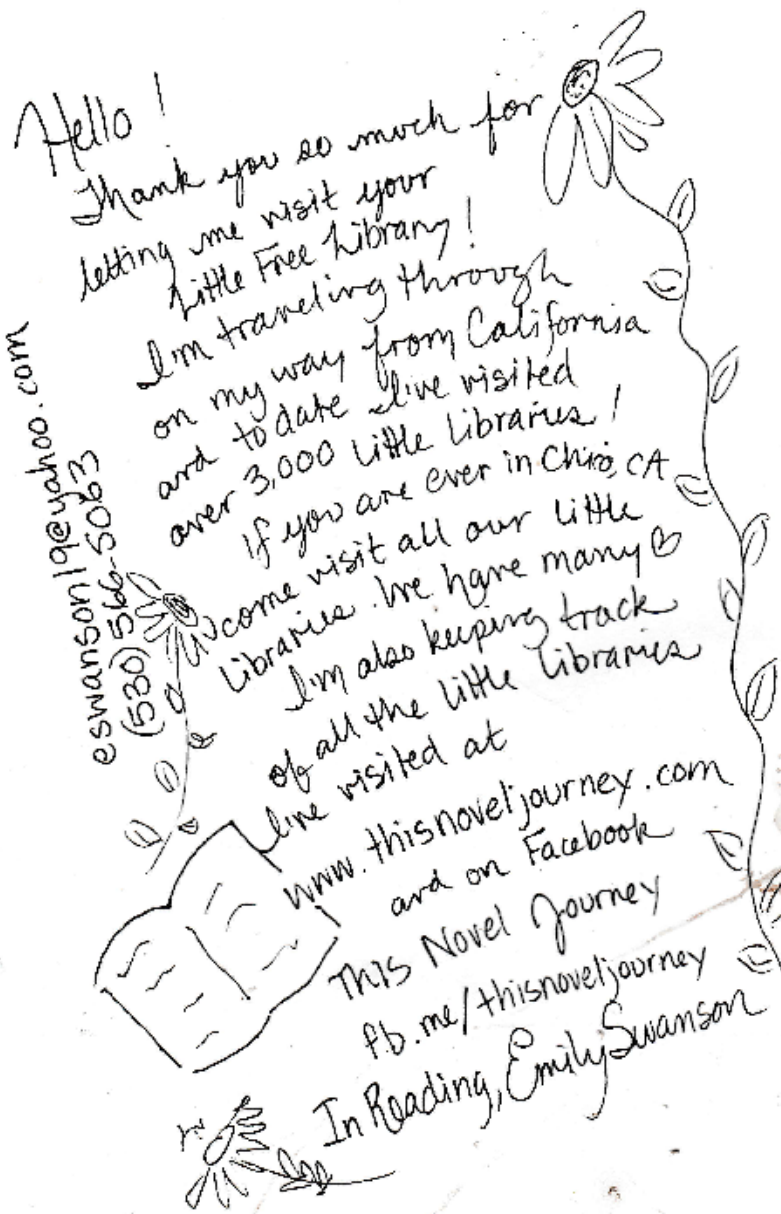 Hello!
Thank you so much for
letting me visit your
Little Free Library!
I'm traveling through
on my way from California
and to date I've visited
over 3,000 little libraries!
If you are ever in Chico, CA
come visit all our little
libraries. We have many
I'm also keeping track
of all the little libraries
I've visited at
www.thisnoveljourney.com
and on Facebook
This Novel Journey
fb.me/thisnoveljourney
In Reading, Emily Swanson
eswanson19@yahoo.com
(530) 566-5063